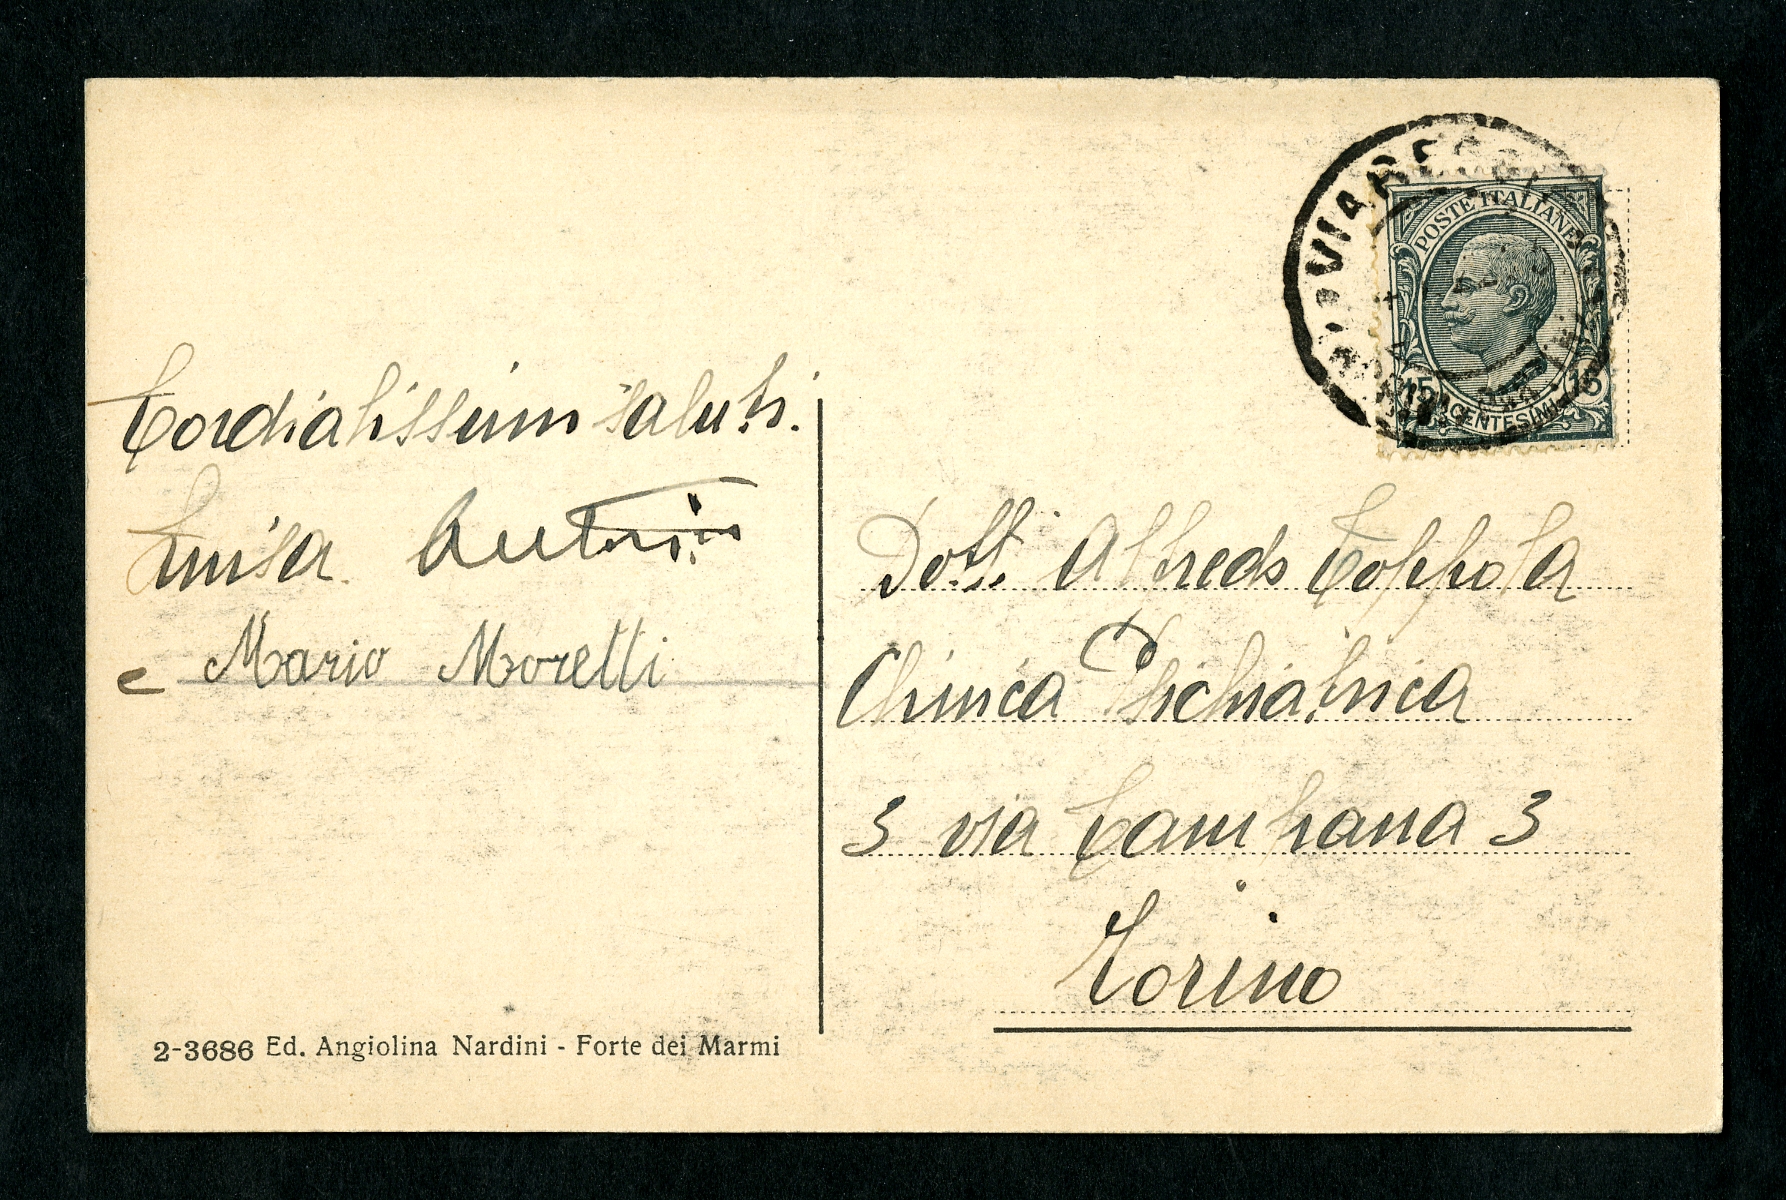 Cordialissimi saluti.
Luisa
e Mario Moretti
2-3686 Ed. Angiolina Nardini - Forte dei Marmi
VIAREGGI
POSTE ITALIANE
15 CENTESIMI 15
Dott. Alfredo Coppola
Clinica Psichiatrica
3 via Campana 3
Torino